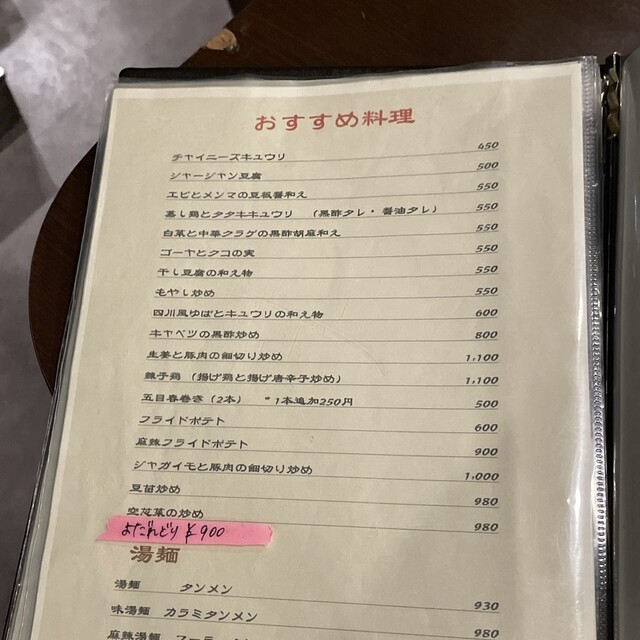 おすすめ料理
チャイニーズキュウリ 450
ジャージャン豆腐 500
エビとメンマの豆板醤和え 550
蒸し鶏とタタキキュウリ （黒酢タレ・醤油タレ） 550
白菜と中華クラゲの黒酢胡麻和え 550
ゴーヤとクコの実 550
干し豆腐の和え物 550
もやし炒め 550
四川風ゆばとキュウリの和え物 600
キャベツの黒酢炒め 800
生姜と豚肉の細切り炒め 1,100
辣子鶏（揚げ鶏と揚げ唐辛子炒め） 1,100
五目春巻き（2本） *1本追加250円 500
フライドポテト 600
麻辣フライドポテト 900
ジャガイモと豚肉の細切り炒め 1,000
豆苗炒め 980
空芯菜の炒め 980
よだれどり ¥900
湯麺
湯麺 タンメン 930
味湯麺 カラミタンメン 980
麻辣湯麺 980